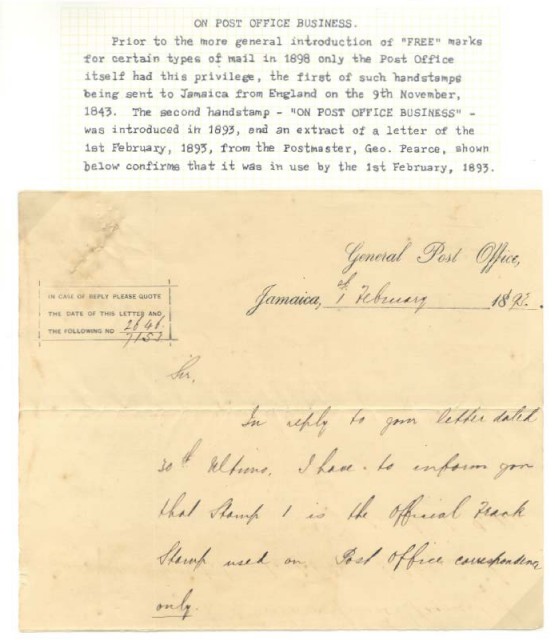 ON POST OFFICE BUSINESS.
Prior to the more general introduction of "FREE" marks
for certain types of mail in 1898 only the Post Office
itself had this privilege, the first of such handstamps
being sent to Jamaica from England on the 9th November,
1843. The second handstamp - "ON POST OFFICE BUSINESS" -
was introduced in 1893, and an extract of a letter of the
1st February, 1893, from the Postmaster, Geo. Pearce, shown
below confirms that it was in use by the 1st February, 1893.
General Post Office,
Jamaica, 1st February 189
IN CASE OF REPLY PLEASE QUOTE
THE DATE OF THIS LETTER AND
THE FOLLOWING NO 2646
7157
Sir,
In reply to your letter dated
30th Ultimo, I have to inform you
that Stamp 1 is the Official Frank
Stamp used on Post Office correspondence
only.